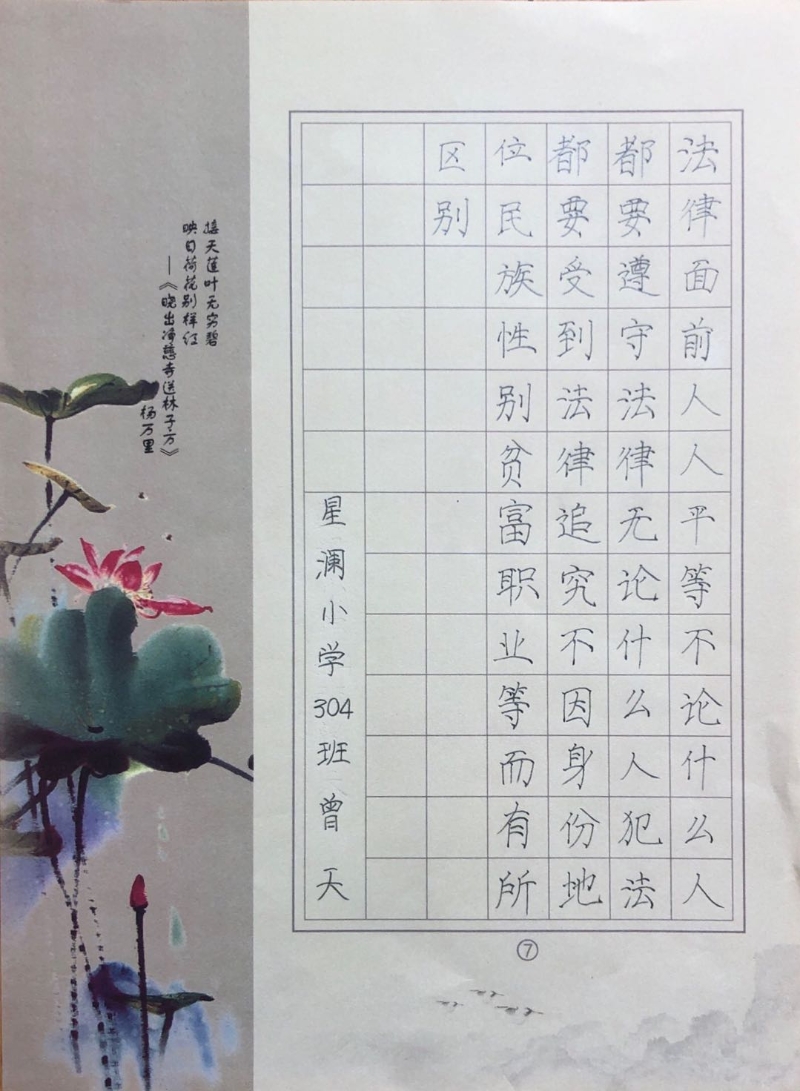 法律面前人人平等不论什么人
都要遵守法律无论什么人犯法
都要受到法律追究不因身份地
位民族性别贫富职业等而有所
区别
星澜小学304班曾天
接天莲叶无穷碧
映日荷花别样红
——《晓出净慈寺送林子方》
杨万里
⑦